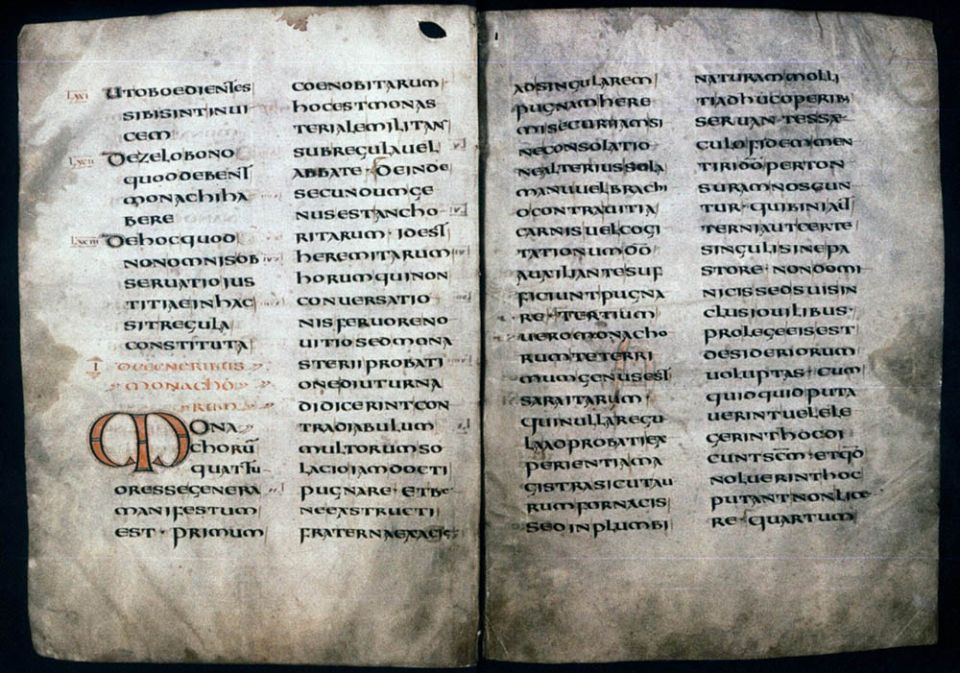 LXXI UTOBOEDIENTES
SIBISINTINUI
CEM
LXXII DEZELOBONO
QUODDEBENT
MONACHIHA
BERE
LXXIII DEHOCQUOD
NONOMNISOB
SERUATIOIUS
TITIAEINHAC
SITREGULA
CONSTITUTA
I DEGENERIBUS
MONACHO
RUM
MONA
CHORŪ
QUATTU
ORESSEGENERA
MANIFESTUM
EST · PRIMUM
COENOBITARUM
HOCESTMONAS
TERIALEMILITANS
SUBREGULAUEL
ABBATE · DEINDE
SECUNDUMGE
NUSESTANCHO
RITARUM · IDEST
HEREMITARUM
HORUMQUINON
CONUERSATIO
NISFERUORENO
UITIOSEDMONA
STERIIPROBATI
ONEDIUTURNA
DIDICERINTCON
TRADIABULUM
MULTORUMSO
LACIOIAMDOCTI
PUGNARE · ETBE
NEEXSTRUCTI
FRATERNAEXACIE
ADSINGULAREM
PUGNAMHERE
MISECURIIAMSI
NECONSOLATIO
NEALTERIUSSOLA
MANUUELBRACHI
OCONTRAUITIA
CARNISUELCOGI
TATIONUMDŌ
AUXILIANTESUF
FICIUNTPUGNA
RE · TERTIUM
UEROMONACHO
RUMTETERRI
MUMGENUSEST
SARAITARUM ·
QUINULLAREGU
LAADPROBATIEX
PERIENTIAMA
GISTRASICUTAU
RUMFORNACIS
SEDINPLUMBI
NATURAMMOLLI
TIADHUCOPERIB
SERUANTESSAE
CULOFIDEMMEN
TIRIDŌPERTON
SURAMNOSCUN
TUR · QUIBINIAUT
TERNIAUTCERTE
SINGULISINEPA
STORE · NONDOMI
NICISSEDSUISIN
CLUSIOUILIBUS ·
PROLEGEEISEST
DESIDERIORUM
UOLUPTAS · CUM
QUIDQUIDPUTA
UERINTUELELE
GERINTHOCDI
CUNTSCM · ETQD
NOLUERINTHOC
PUTANTNONLICE
RE · QUARTUM